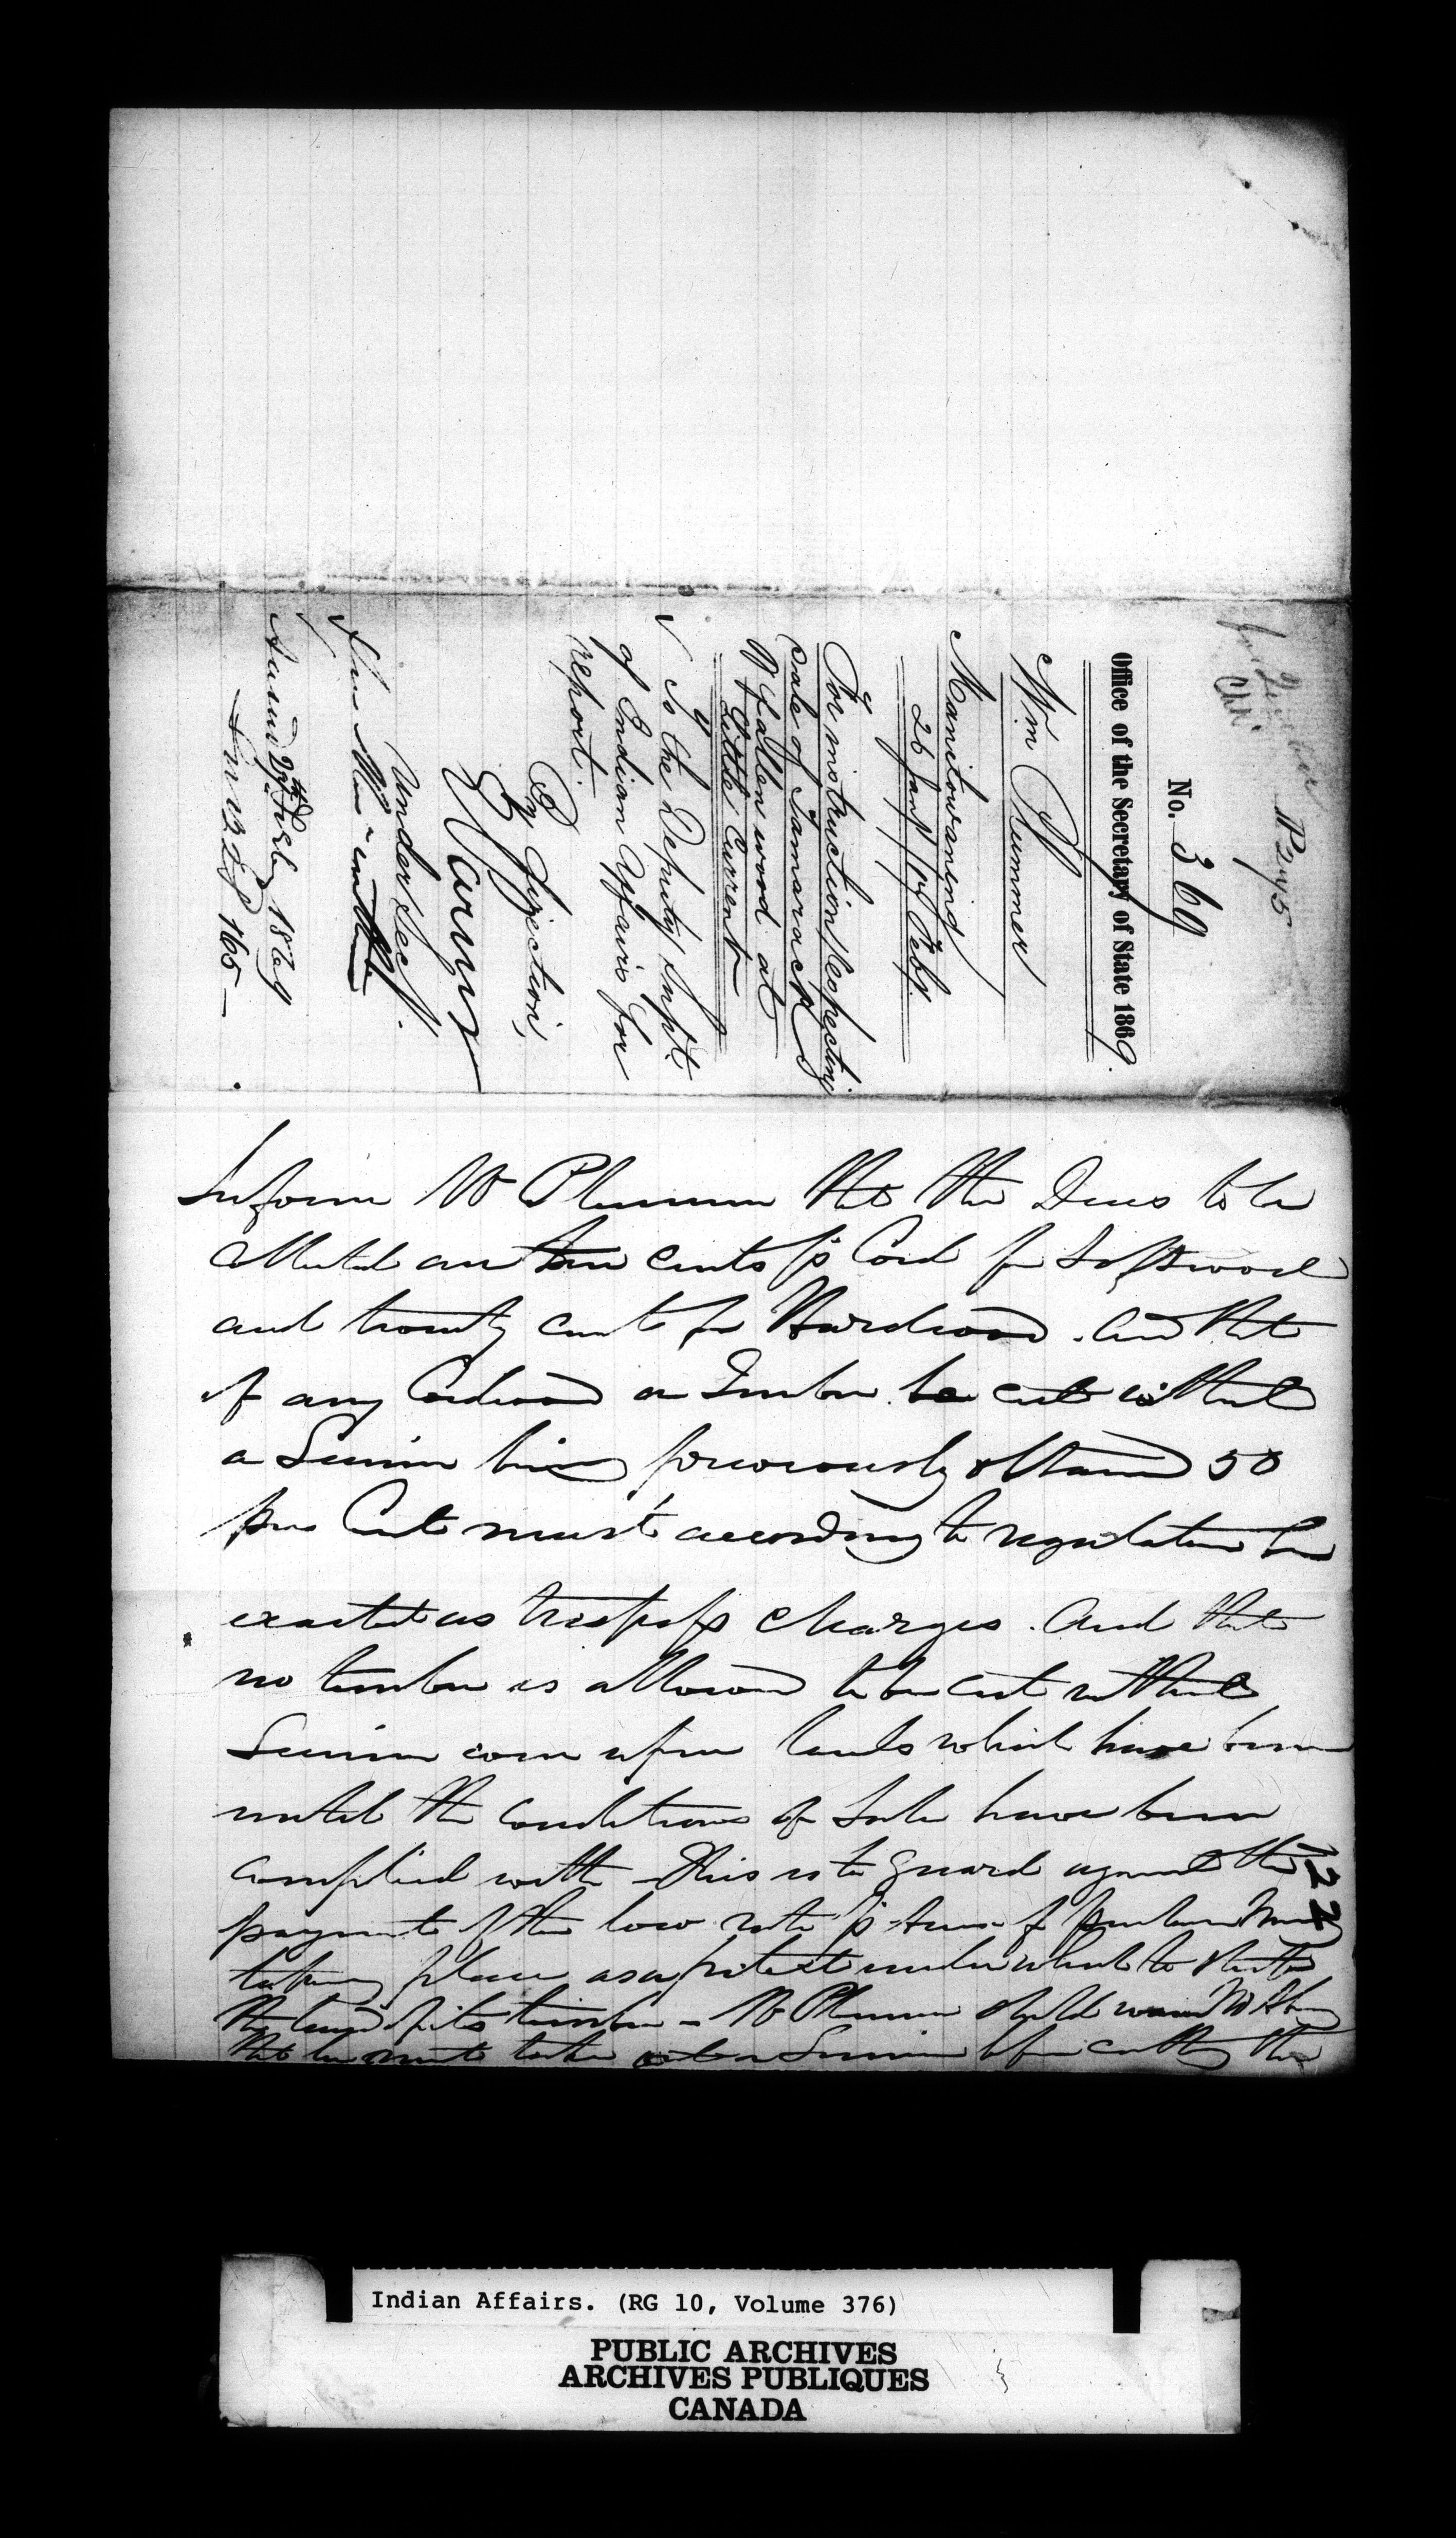 P2745
No. 369
Office of the Secretary of State 1869.
Wm Plummer
Manitowaning
26 Jany / 1st Feby.
For instructions respecting
sale of Tamarack
& fallen wood at
Little Current
To the Deputy Supt.
of Indian Affairs for
report.
By direction,
Under Sec.
Feby 1869
165
Inform Mr Plummer that the Dues to be
collected are ten cents p Cord for Softwood
and twenty cents for Hardwood. And that
if any Cordwood or Timber be cut without
a License being previously obtained 50
per Cent must according to regulation be
exacted as trespass charges. And that
no timber is allowed to be cut without
License even upon lands which have been
until the conditions of Sale have been
complied with - This is to guard against the
payment of the low rate p Acre of purchase Money
taking place as a pretext under which to
the land of its timber - Mr Plummer should warn Mr
that he must take out a License before cutting the
122
Indian Affairs. (RG 10, Volume 376)
PUBLIC ARCHIVES
ARCHIVES PUBLIQUES
CANADA